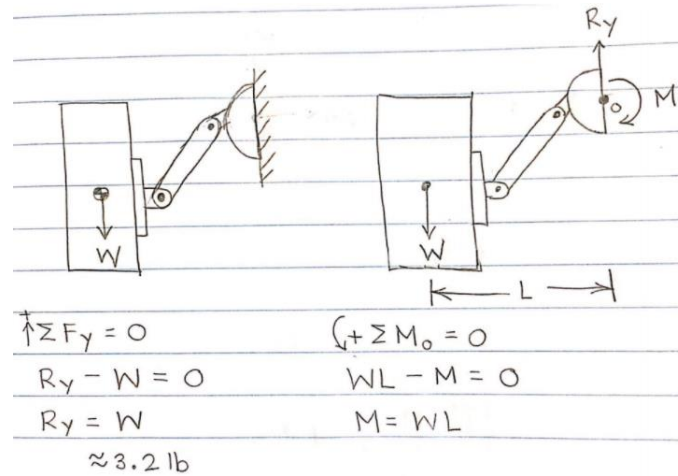 R_y
o
M
W
W
L
+↑ΣF_y = 0
R_y - W = 0
R_y = W
≈3.2 lb
↺+ΣM_o = 0
WL - M = 0
M = WL